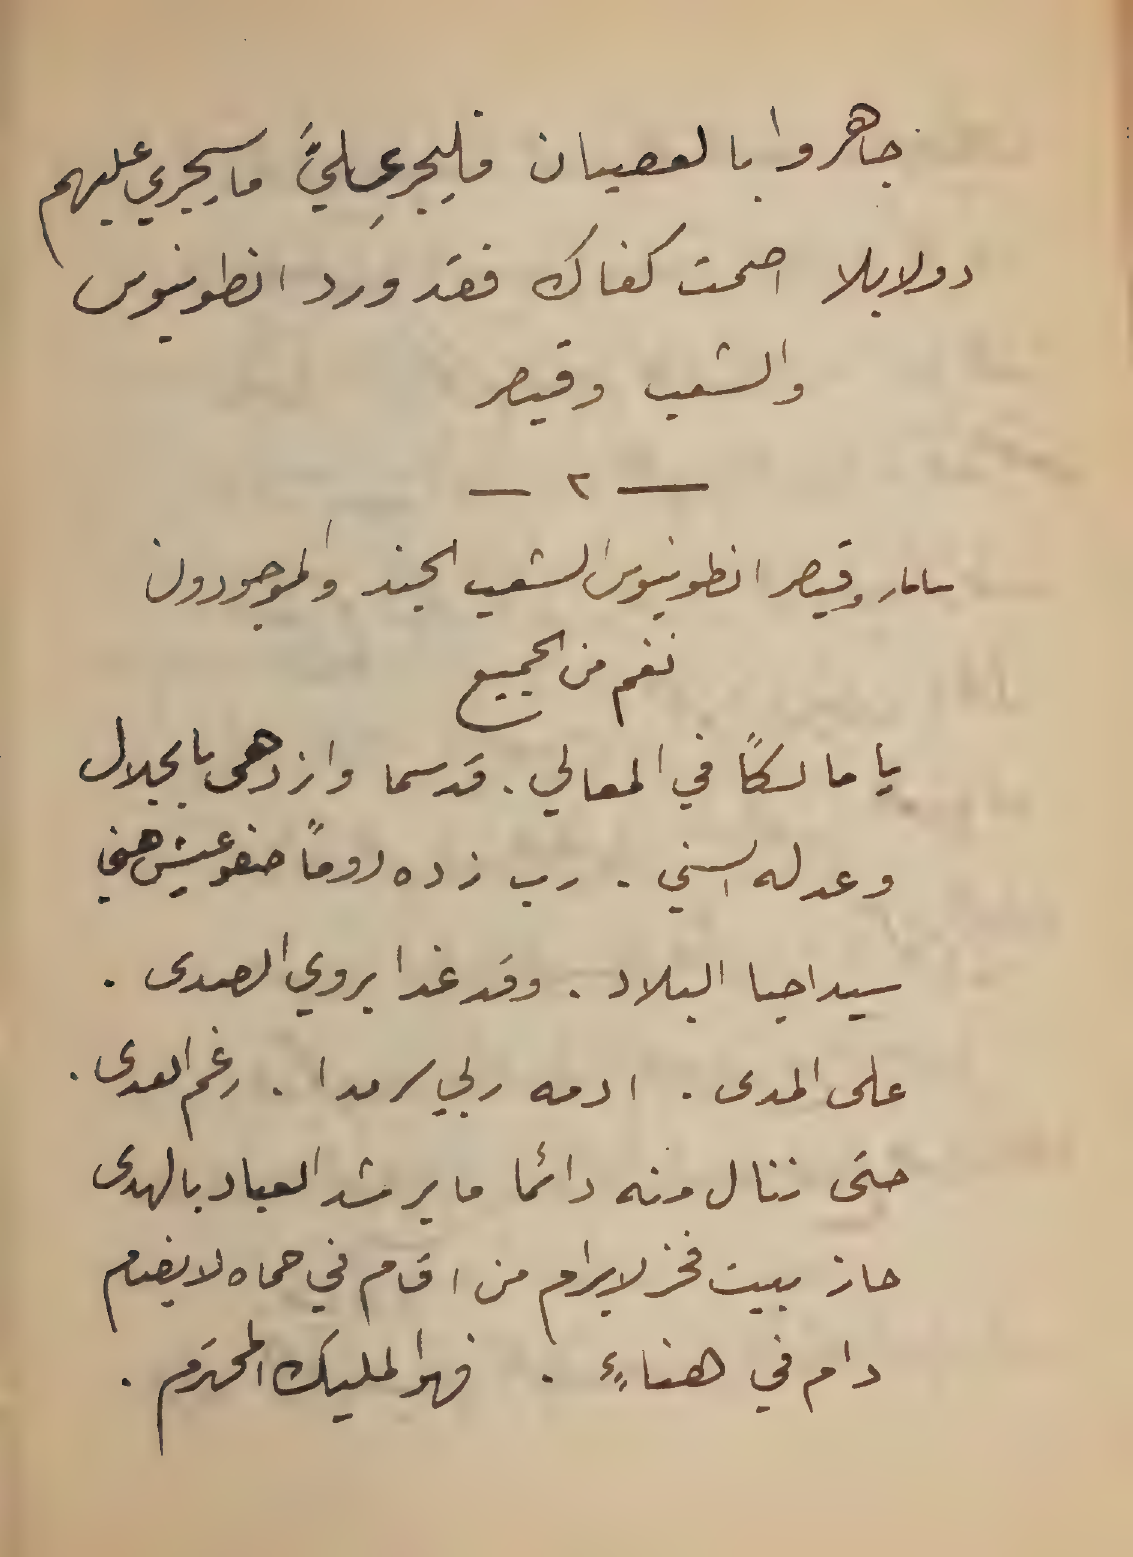 جاهروا بالعصيان فليجرِ عليَّ ما سيجري عليهم
دولابلا اصمت كفاك فقد ورد انطونيوس
والشعب وقيصر
— ٢ —
سامار وقيصر انطونيوس الشعب الجند والموجودون
نغم من الجميع
يا مالكاً في المعالي . قد سما وازدهى بالجلال
وعدله السني . رب زده دوماً صفو عيش هني
سيد احيا البلاد . وقد غدا يروي الصدى .
على المدى . ادمه ربي سرمدا . رغم العدى .
حتى ننال منه دائما ما يرشد العباد بالهدى
حاز بيت فخر لا يرام من اقام في حماه لا يضام
دام في هناءٍ . فهو المليك المحترم .